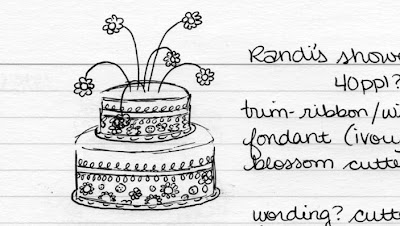 Randi's showe
40ppl?
trim-ribbon/wi
fondant (ivou
blossom cutte
wording? cutt